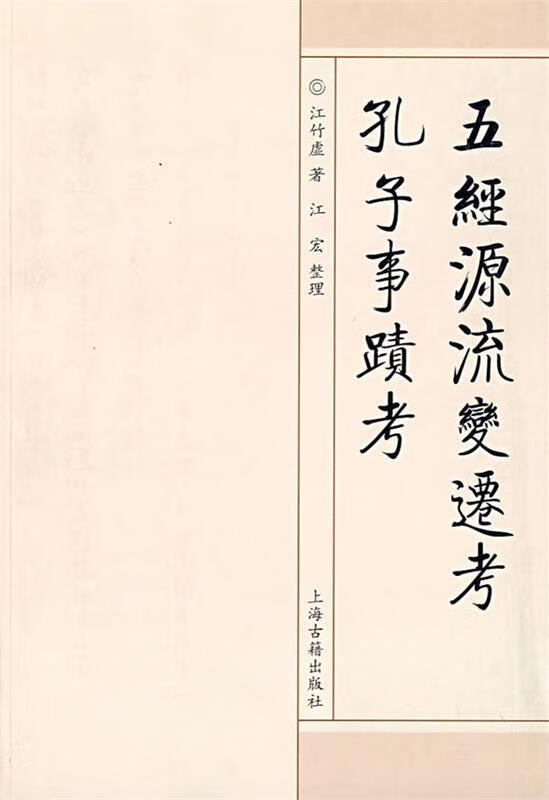 五經源流變遷考
孔子事蹟考
◎江竹虛 著 江 宏 整理
上海古籍出版社